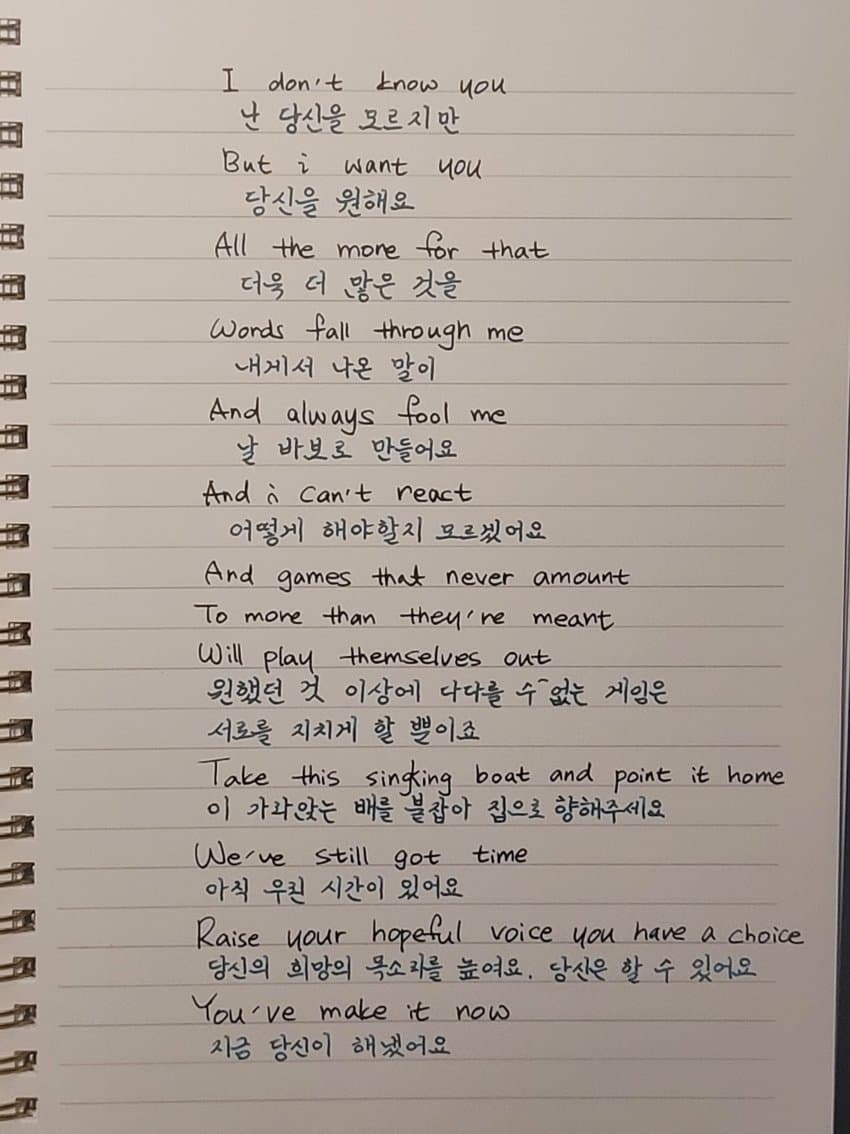 I don't know you
난 당신을 모르지만
But i want you
당신을 원해요
All the more for that
더욱 더 많은 것을
Words fall through me
내게서 나온 말이
And always fool me
날 바보로 만들어요
And i can't react
어떻게 해야할지 모르겠어요
And games that never amount
To more than they're meant
Will play themselves out
원했던 것 이상에 다다를 수 없는 게임은
서로를 지치게 할 뿐이죠
Take this singking boat and point it home
이 가라앉는 배를 붙잡아 집으로 향해주세요
We've still got time
아직 우린 시간이 있어요
Raise your hopeful voice you have a choice
당신의 희망의 목소리를 높여요. 당신은 할 수 있어요
You've make it now
지금 당신이 해냈어요